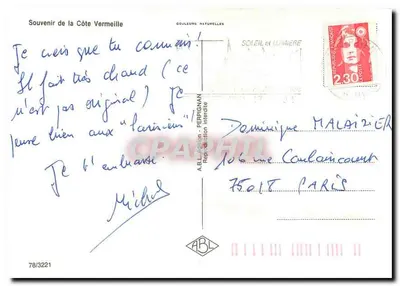 Souvenir de la Côte Vermeille
COULEURS NATURELLES
Je crois que tu connais!
Il fait très chaud (ce
n'est pas original) Je
pense bien aux "parisiens"!
Je t'embrasse.
Michel
SOLEIL et LUMIERE
2,30
Dominique MALAIZIER
106 rue Caulaincourt
75018 PARIS
A.B.L. PERPIGNAN
Reproduction interdite
CPAPHIL
ABL
78/3221